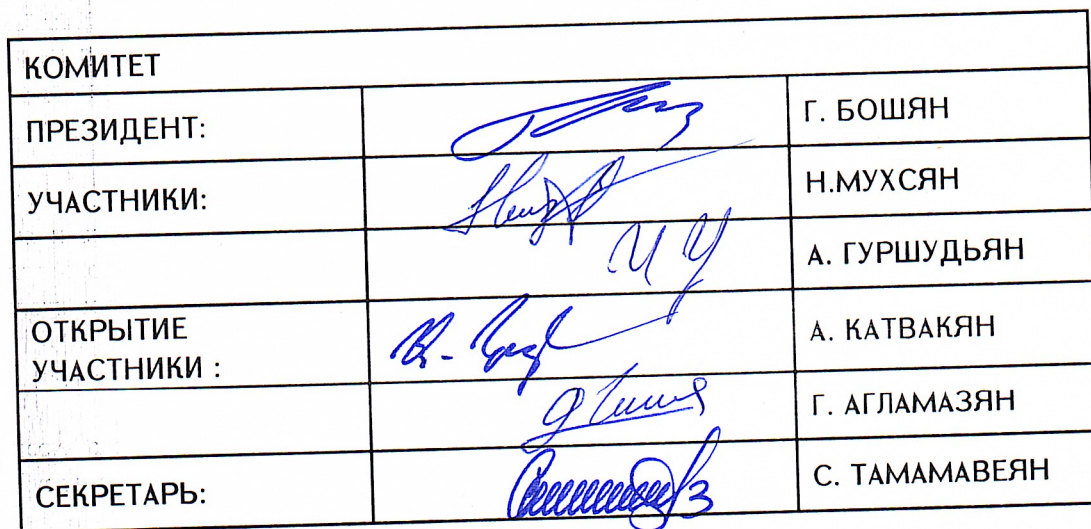 КОМИТЕТ
ПРЕЗИДЕНТ: Г. БОШЯН
УЧАСТНИКИ: Н.МУХСЯН
А. ГУРШУДЬЯН
ОТКРЫТИЕ
УЧАСТНИКИ : А. КАТВАКЯН
Г. АГЛАМАЗЯН
СЕКРЕТАРЬ: С. ТАМАМАВЕЯН